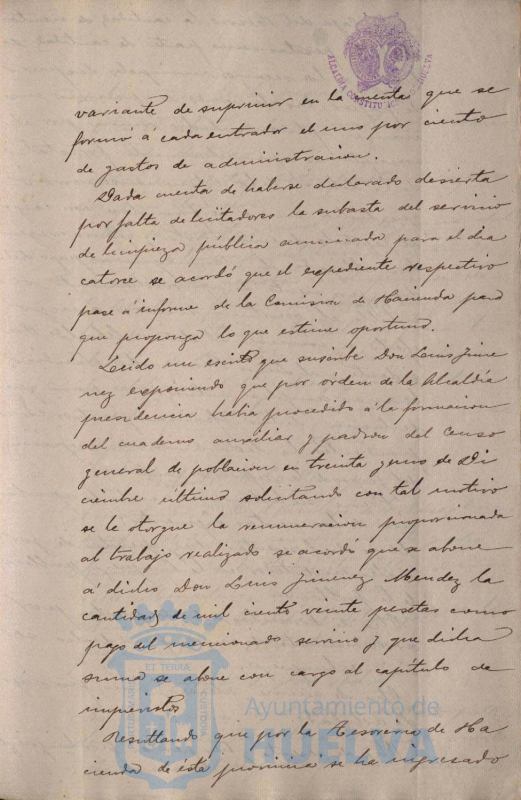 ALCALDÍA CONSTITU HUELVA
variante de suprimir en la cuenta que se
formó á cada entrador el uno por ciento
de gastos de administracion.
Dada cuenta de haberse declarado desierta
por falta de licitadores la subasta del servicio
de limpieza pública anunciada para el dia
catorce se acordó que el expediente respectivo
pase á informe de la Comision de Hacienda para
que proponga lo que estime oportuno.
Leido un escrito que suscribe Don Luis Jime
nez exponiendo que por órden de la Alcaldía
presidencia habia procedido á la formacion
del cuaderno auxiliar y padron del Censo
general de poblacion en treinta y uno de Di
ciembre último solicitando con tal motivo
se le otorgue la remuneracion proporcionada
al trabajo realizado se acordó que se abone
á dicho Don Luis Jimenez Mendez la
cantidad de mil ciento veinte pesetas como
pago del mencionado servicio y que dicha
suma se abone con cargo al capítulo de
imprevistos
Resultando que por la Tesoreria de Ha
cienda de ésta provincia se ha ingresado
ET TERRA
CUSTODIA
Ayuntamiento de
HUELVA